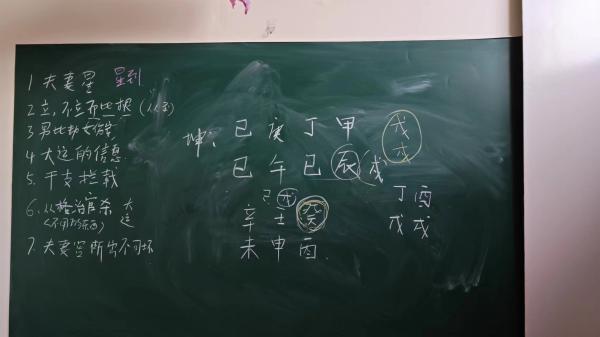 1 夫妻星 星到
2 立,不立 比根
3 男比劫女
4 大运的信息
5. 干支拦截
6. 从格治官杀 大运
7. 夫妻宫所出不可坏
坤: 己 庚 丁 甲 戊
巳 午 巳 辰 戌 戌
己 戊
辛 壬 癸
未 申 酉
丁 酉
戊 戌